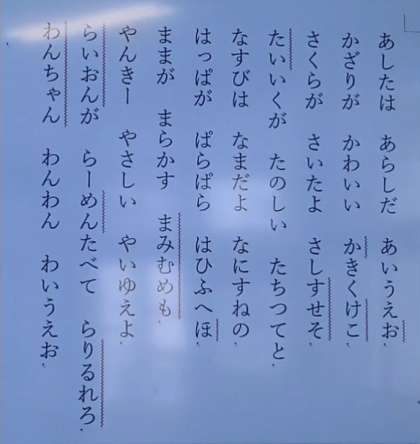 あしたは　あらしだ　あいうえお、
かざりが　かわいい　かきくけこ、
さくらが　さいたよ　さしすせそ、
たいいくが　たのしい　たちつてと、
なすびは　なまだよ　なにすねの、
はっぱが　ぱらぱら　はひふへほ、
ままが　まらかす　まみむめも、
やんきー　やさしい　やいゆえよ、
らいおんが　らーめんたべて　らりるれろ、
わんちゃん　わんわん　わいうえお、